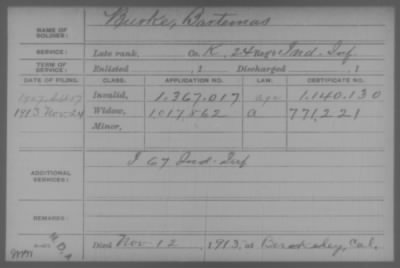 NAME OF SOLDIER: Burke, Bartemas
SERVICE: Late rank, Co. K, 24 Ind. Inf.
TERM OF SERVICE: Enlisted , 1 Discharged , 1
DATE OF FILING. CLASS. APPLICATION NO. LAW. CERTIFICATE NO.
Invalid, 1.367.017 1.140.130
1913 Nov 24 Widow, 1017.862 a 771,221
Minor,
ADDITIONAL SERVICES: I 67 Ind. Inf
REMARKS:
Died Nov. 12, 1913, at Berkeley, Cal.